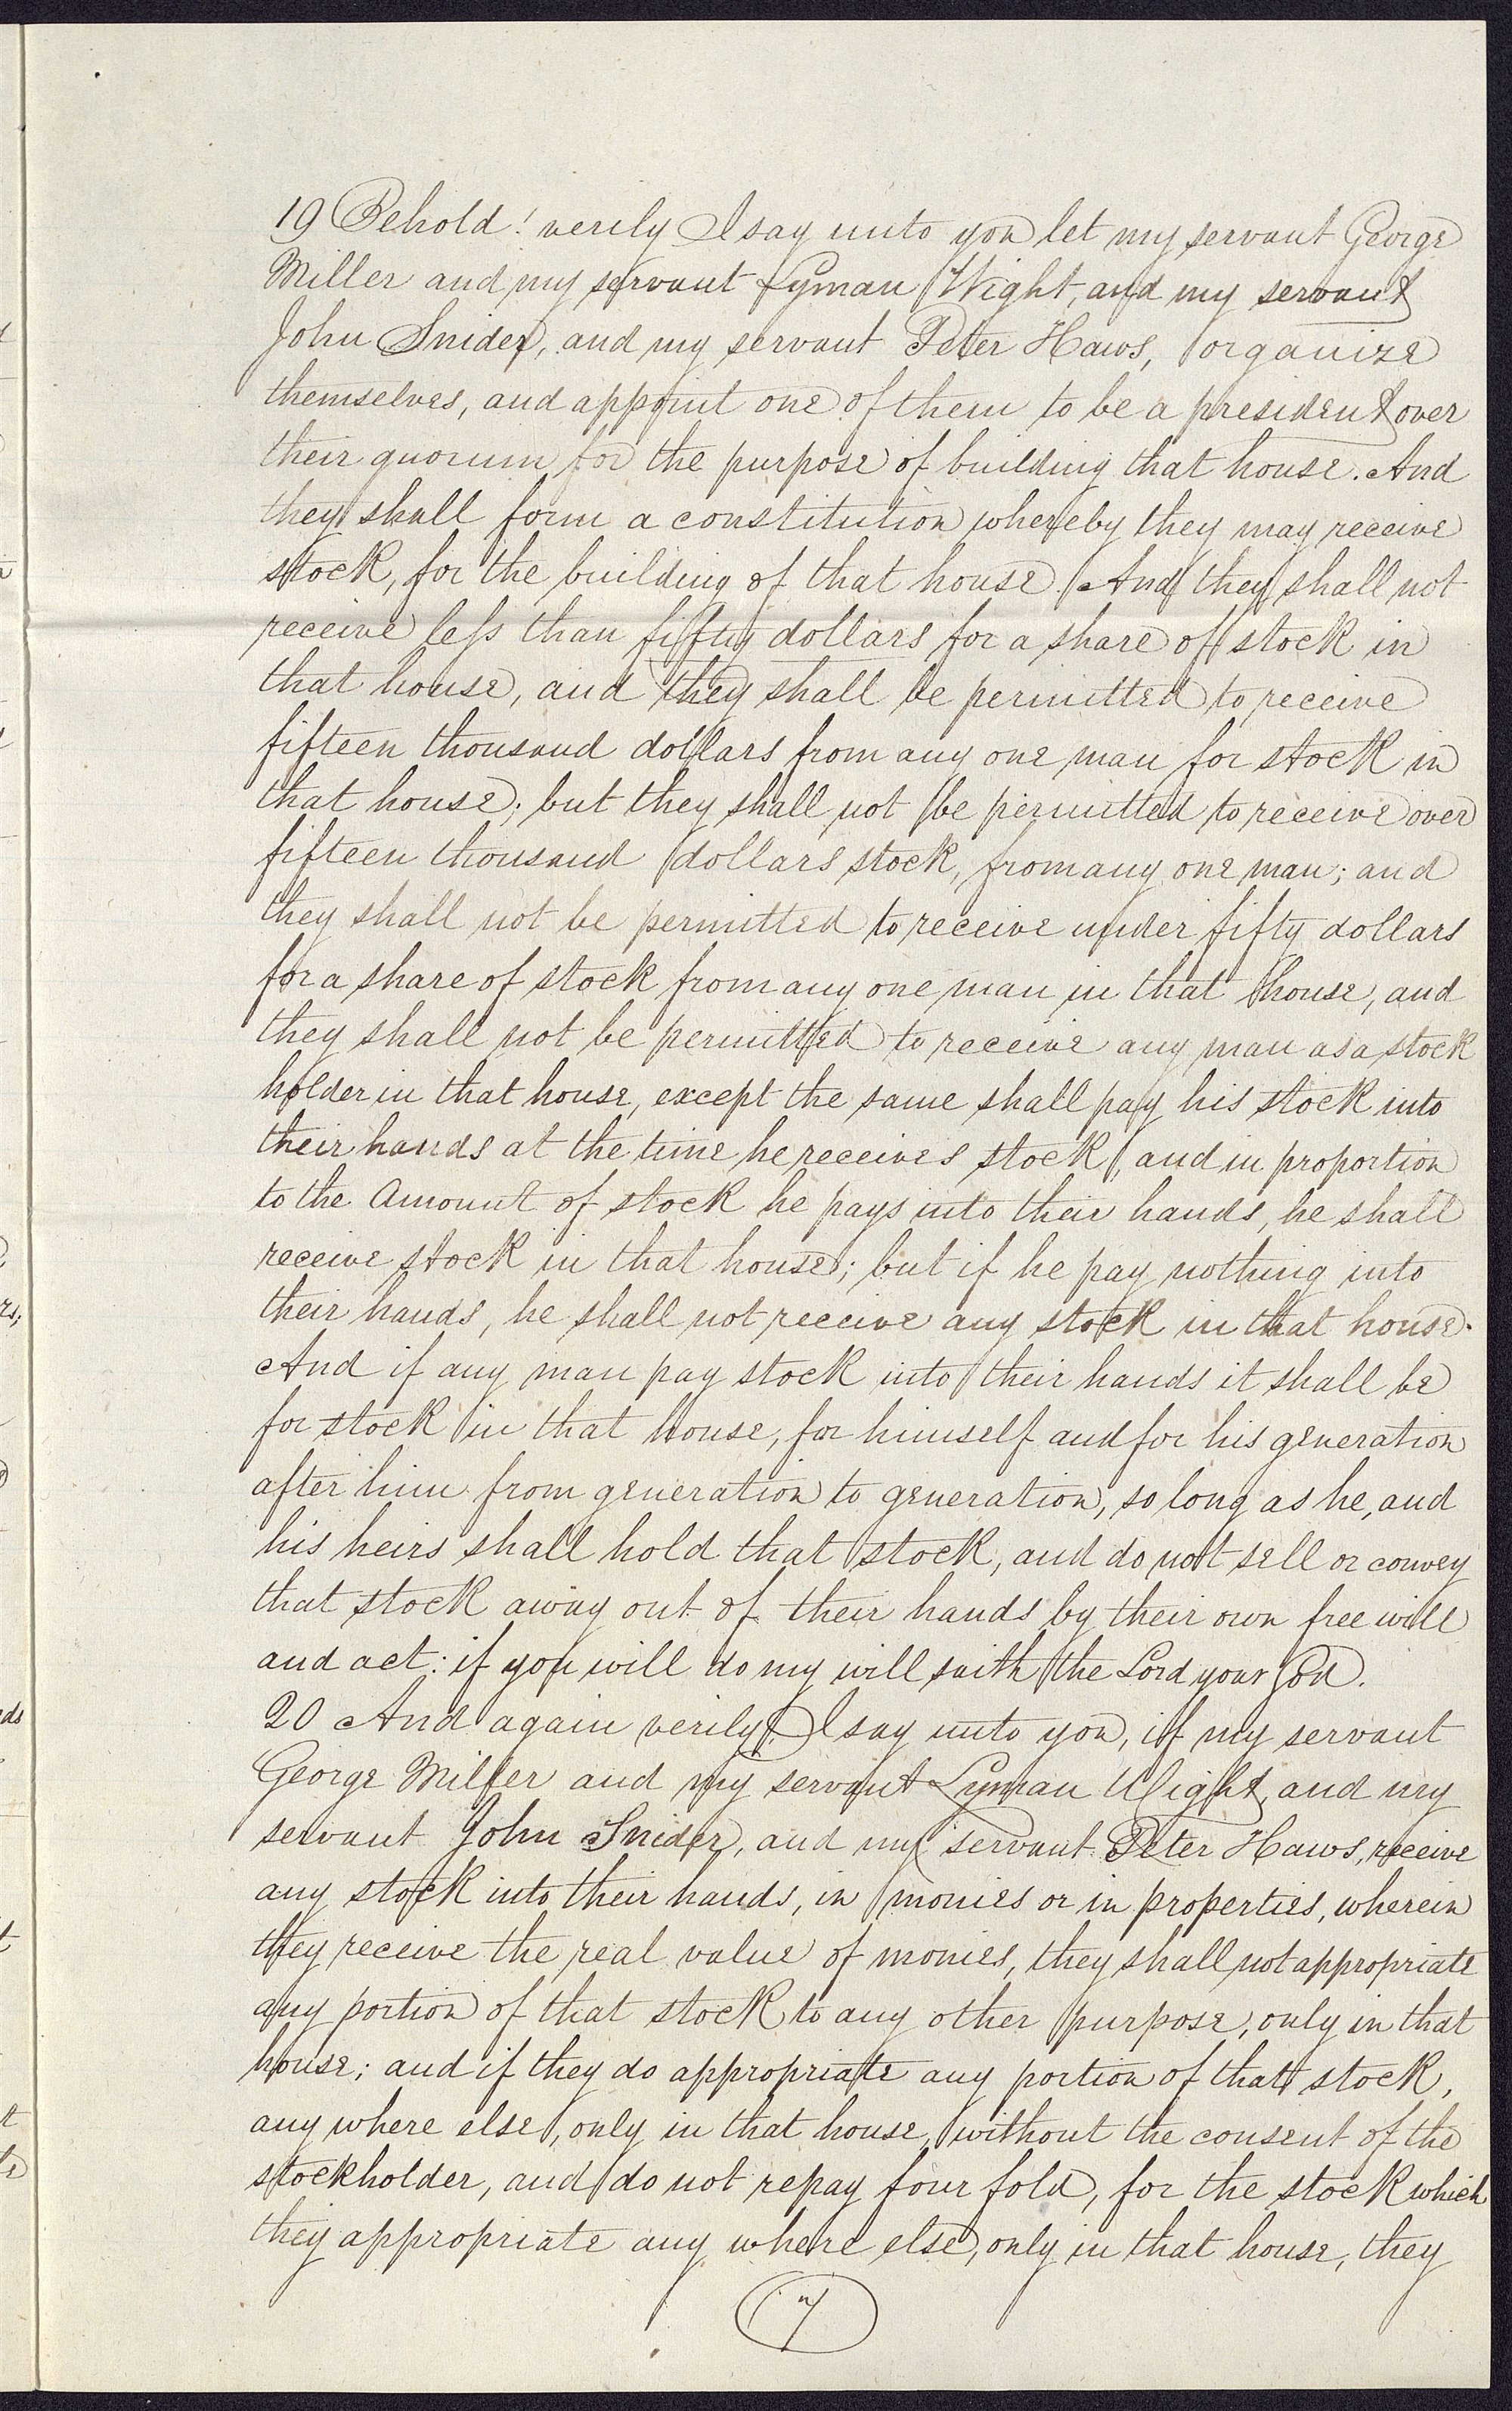 19 Behold! verily I say unto you let my servant George
Miller and my servant Lyman Wight, and my servant
John Snider, and my servant Peter Haws, organize
themselves, and appoint one of them to be a president over
their quorum for the purpose of building that house. And
they shall form a constitution whereby they may receive
stock, for the building of that house. And they shall not
receive less than fifty dollars for a share of stock in
that house, and they shall be permitted to receive
fifteen thousand dollars from any one man for stock in
that house; but they shall not be permitted to receive over
fifteen thousand dollars stock, from any one man; and
they shall not be permitted to receive under fifty dollars
for a share of stock from any one man in that house, and
they shall not be permitted to receive any man as a stock
holder in that house, except the same shall pay his stock into
their hands at the time he receives stock, and in proportion
to the Amount of stock he pays into their hands, he shall
receive stock in that house; but if he pay nothing into
their hands, he shall not receive any stock in that house.
And if any man pay stock into their hands it shall be
for stock in that house, for himself and for his generation
after him from generation to generation, so long as he, and
his heirs shall hold that stock, and do not sell or convey
that stock away out of their hands by their own free will
and act: if you will do my will saith the Lord your God.
20 And again verily I say unto you, if my servant
George Miller and my servant Lyman Wight, and my
servant John Snider, and my servant Peter Haws, receive
any stock into their hands, in monies or in properties, wherein
they receive the real value of monies, they shall not appropriate
any portion of that stock to any other purpose, only in that
house; and if they do appropriate any portion of that stock,
any where else, only in that house, without the consent of the
stockholder, and do not repay four fold, for the stock which
they appropriate any where else, only in that house, they
7